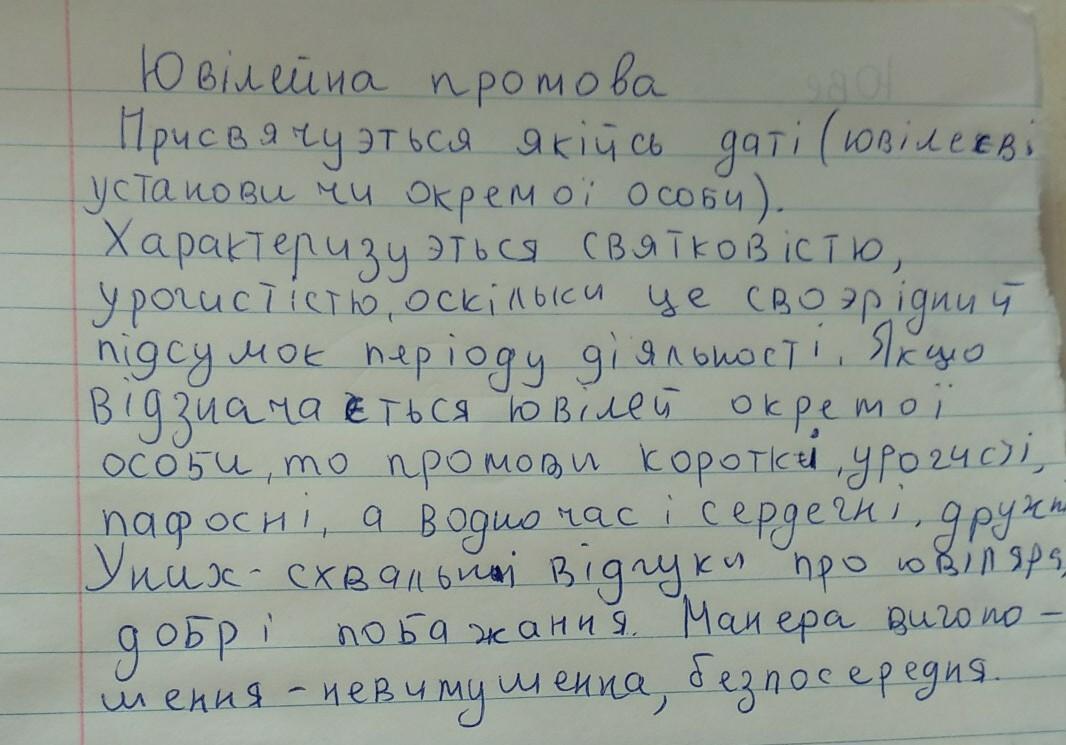 Ювілейна промова
Присвячуэться якійсь даті (ювілеєві
установи чи окремої особи).
Характеризуэться святковістю,
урочистістю, оскільки це своэрідний
підсумок періоду діяльності. Якщо
відзначається ювілей окремої
особи, то промови короткі, урочисті,
пафосні, а водночас і сердечні, дружн
У них - схвальні відгуки про ювіляра,
добрі побажання. Манера виголо -
шення - невимушенна, безпосередня.